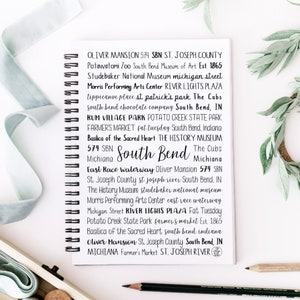 OLIVER MANSION 574 SBN ST. JOSEPH COUNTY
Potawatomi Zoo South Bend Museum of Art Est 1865
Studebaker National Museum michigan street
Morris Performing Arts Center RIVER LIGHTS PLAZA
tippecanoe place st patrick's park The Cubs
south bend chocolate company South Bend, IN
RUM VILLAGE PARK POTATO CREEK STATE PARK
FARMERS MARKET fat tuesday South Bend, Indiana
Basilica of the Sacred Heart THE HISTORY MUSEUM
574 SBN South Bend The Cubs
Michiana Michiana
East Race Waterway Oliver Mansion 574 SBN
St. Joseph County st joseph river South Bend, IN
The History Museum studebaker national museum
Morris Performing Arts Center east race waterway
Michigan Street RIVER LIGHTS PLAZA Fat Tuesday
Potato Creek State Park farmer's market Est. 1865
Basilica of the Sacred Heart south bend, indiana
Oliver Mansion St. Joseph County South Bend, IN
MICHIANA Farmer's Market ST. JOSEPH RIVER